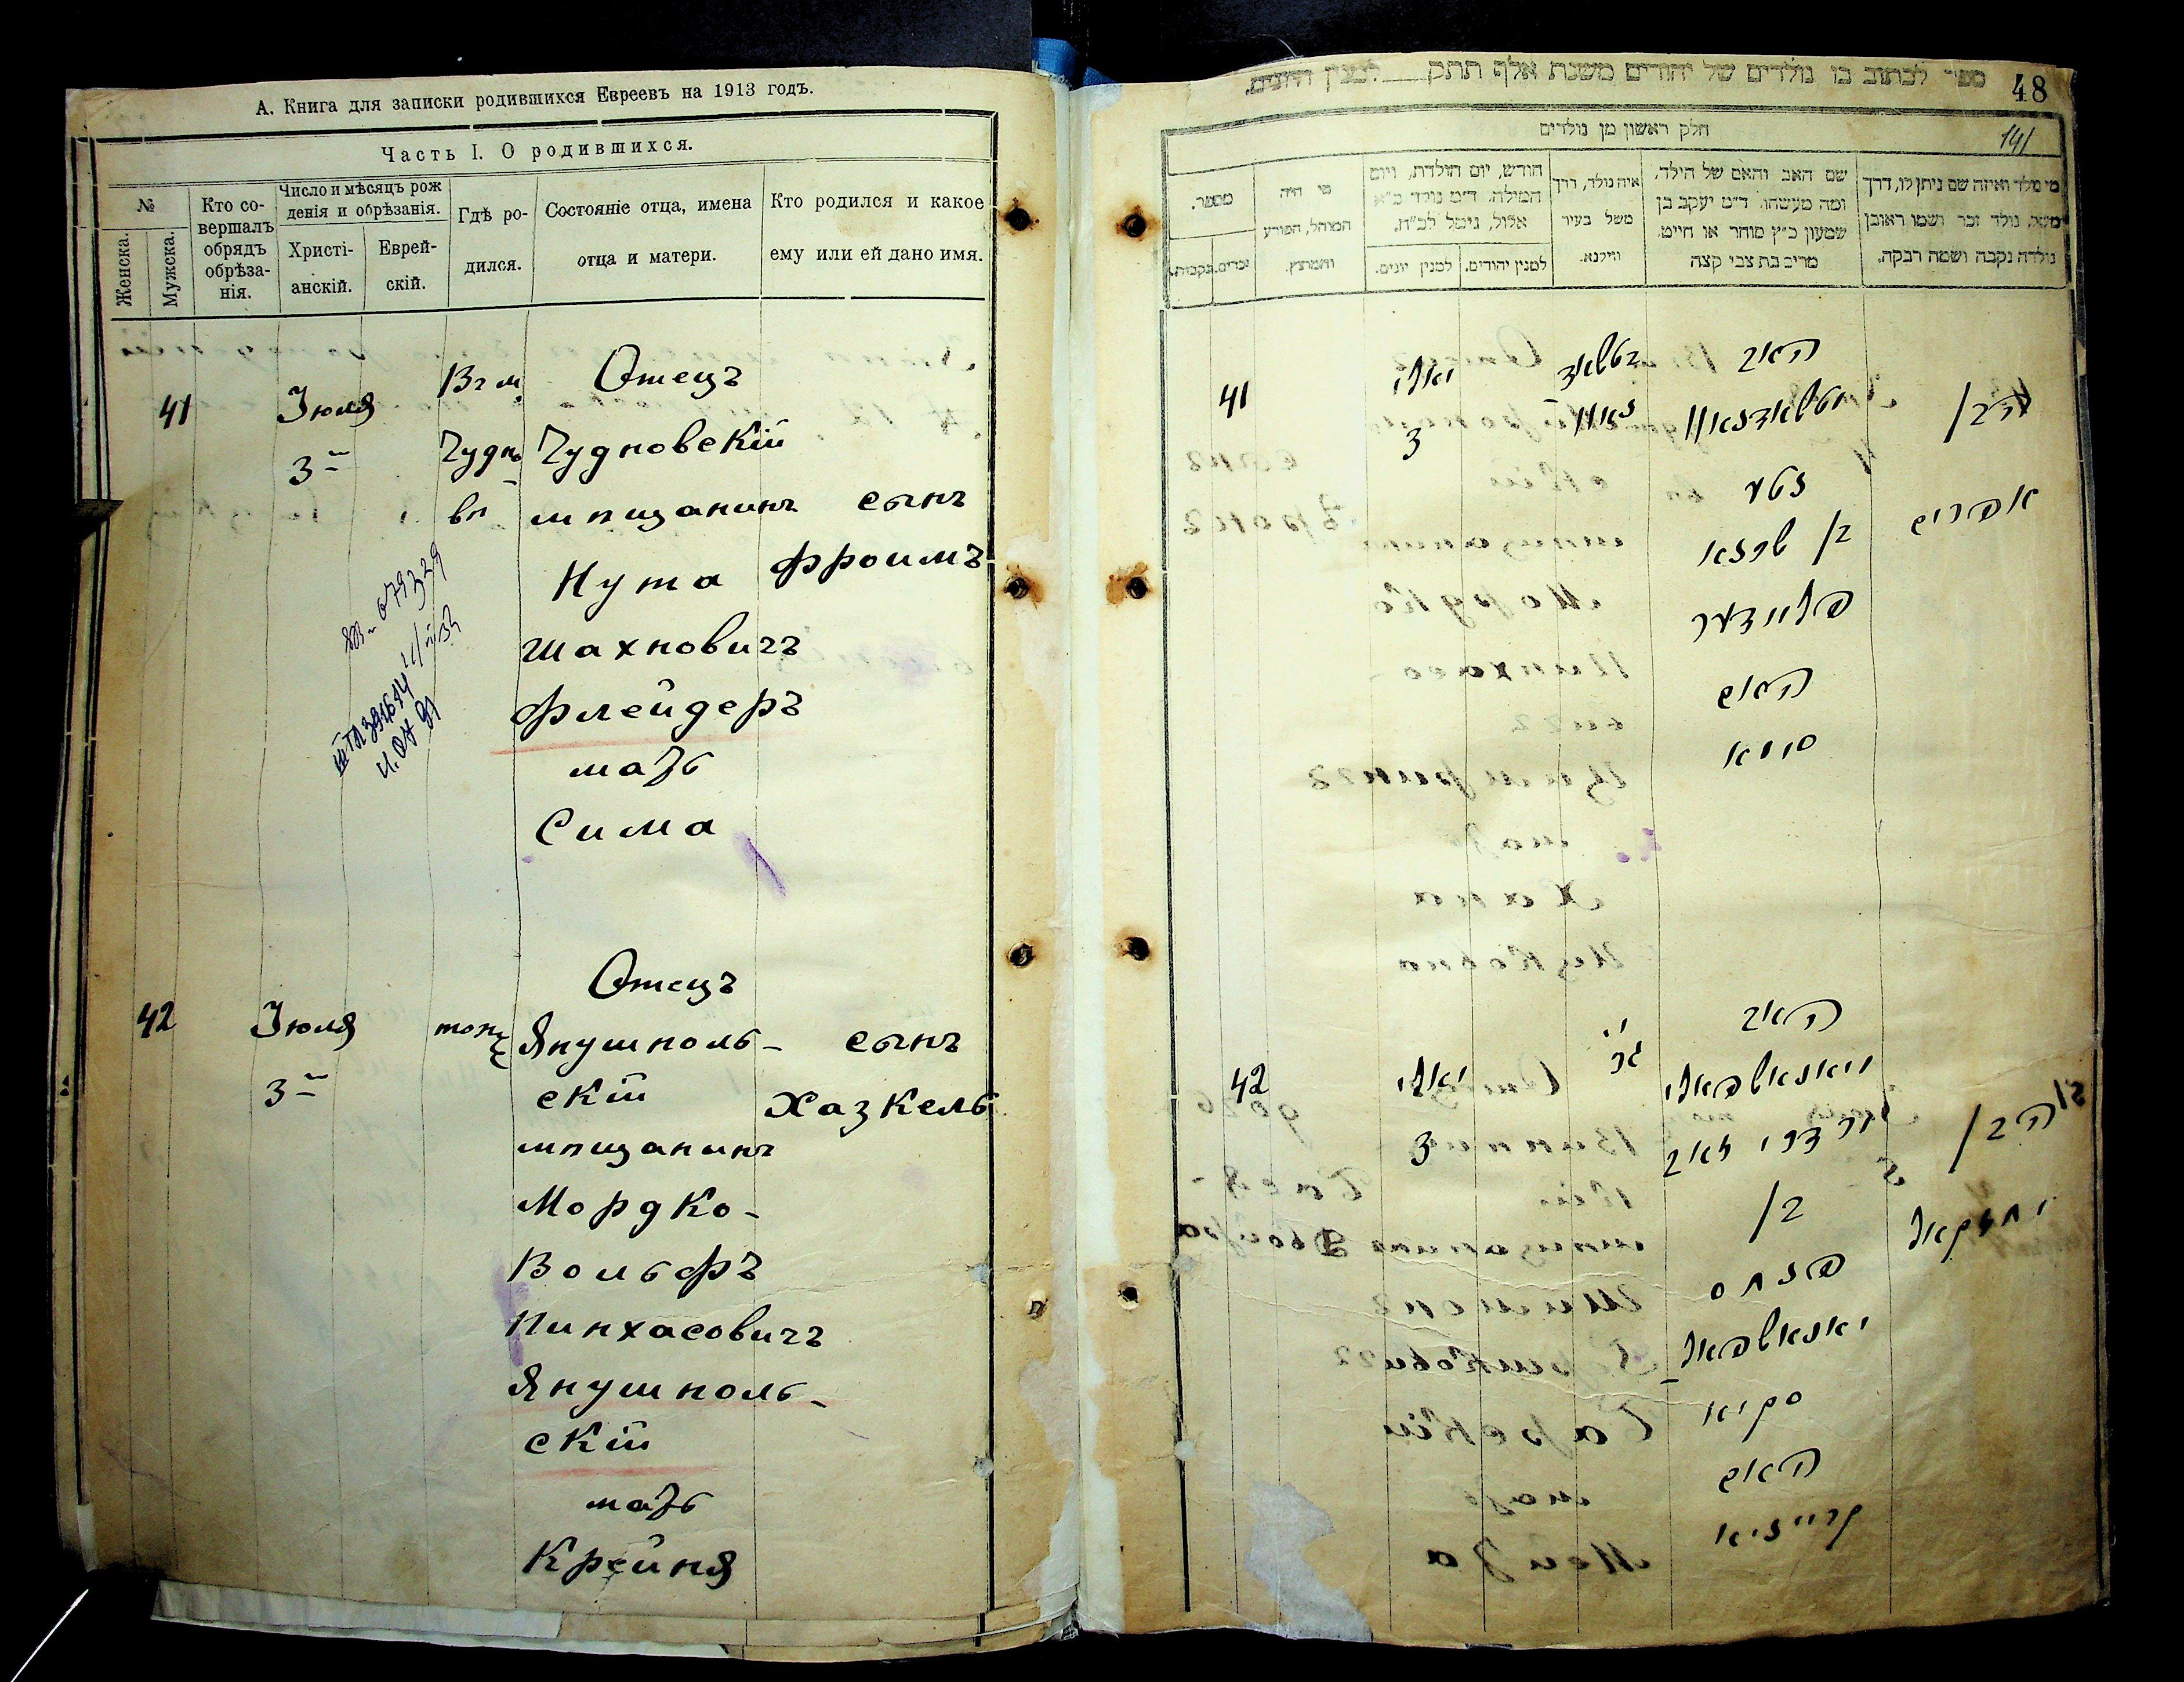 А. Книга для записки родившихся Евреевъ на 1913 годъ.
Часть I. О родившихся.
№
Женска.
Мужска.
Кто со-
вершалъ
обрядъ
обрѣза-
нія.
Число и мѣсяцъ рож
денія и обрѣзанія.
Христі-
анскій.
Еврей-
скій.
Гдѣ ро-
дился.
Состояніе отца, имена
отца и матери.
Кто родился и какое
ему или ей дано имя.
41
Іюля
3
Въ м.
Чудно
вѣ
Отецъ
Чудновскій
мѣщанинъ
Нута
Шахновичъ
Флейдеръ
мать
Сима
сынъ
Фроимъ
42
Іюля
3
Отецъ
Янушполь-
скій
мѣщанинъ
Мордко-
Вольфъ
Пинхасовичъ
Янушполь-
скій
мать
Крейня
сынъ
Хазкель
48
141
ספר לכתוב בו נולדים של יהודים משנת אלף תתק למנין היונים.
חלק ראשון מן נולדים
מי נולד ואיזה שם ניתן לו, דרך
משל, נולד זכר ושמו ראובן
נולדה נקבה ושמה רבקה.
שם האב והאם של הילד,
ומה מעשהו. ד״מ יעקב בן
שמעון כ״ץ סוחר או חייט.
מרים בת צבי קצה
איה נולד, דרך
משל בעיר
ווילנא.
חודש, יום הולדת, ויום
המילה. ד״מ נולד כ״א
אלול, נימול לכ״ח.
למנין יהודים.
למנין יונים.
מי היה
המוהל, הפורע
והמוצץ.
מספר.
זכרים.
נקבות.
41
יאלי
3
האב
נטע
פליידער
האם
סימא
הבן
אפרים
42
יאלי
3
האב
בן
פנחס
האם
קרייניא
הבן
יחזקאל